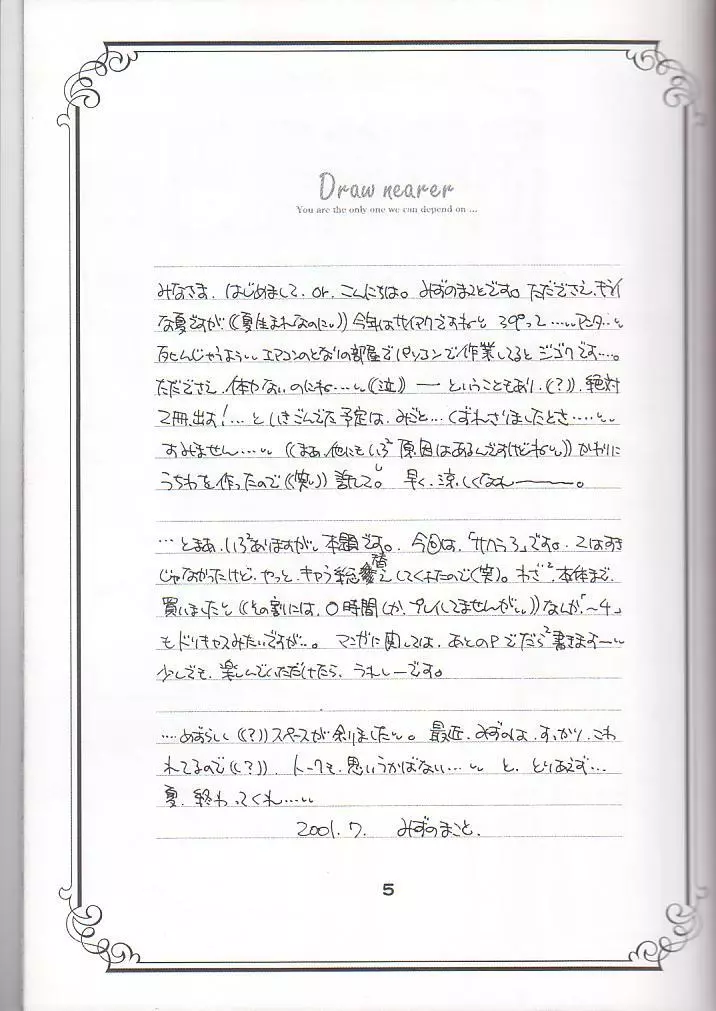 Draw nearer
You are the only one we can depend on ...
みなさま、はじめまして、or、こんにちは。みずのまことです。ただでさえ、キライ
な夏ですが((夏生まれなのに。))今年はサイアクですねぇと 39°って…
死んじゃうよう… エアコンのとなりの部屋でパソコンで作業してると ジゴクです…。
ただでさえ、体力ないのにね…((泣)) ― ということもあり、(?)、絶対
2冊、出す!… と いきごんでた予定は、みごと… くずれさりましたとさ……
すみません… ((まあ、他にもいろ2原因はあるんですけどね))かわりに
うちわを作ったので((笑い)) 許して。 早く、涼しくなれ―――。
…とまあ、いろ2ありますが、本題です。今回は、「サクラ3」です。2はすき
じゃなかったけど、やっと、キャラ総替えしてくれたので(笑)。わざ2、本体まで、
買いましたと((その割には、0時間しか、プレイしてませんが))なんか「~4」
もドリキャスみたいですが…。 マンガに関しては、あとのPでだら2書きます~
少しでも、楽しんでいただけたら、うれしーです。
…めずらしく((?))スペースが余りました。最近、みずのは、すっかり、こわ
れてるので((?))、トークも、思いうかばない… と、とりあえず…
夏、終わってくれ…
2001.7. みずのまこと.
5